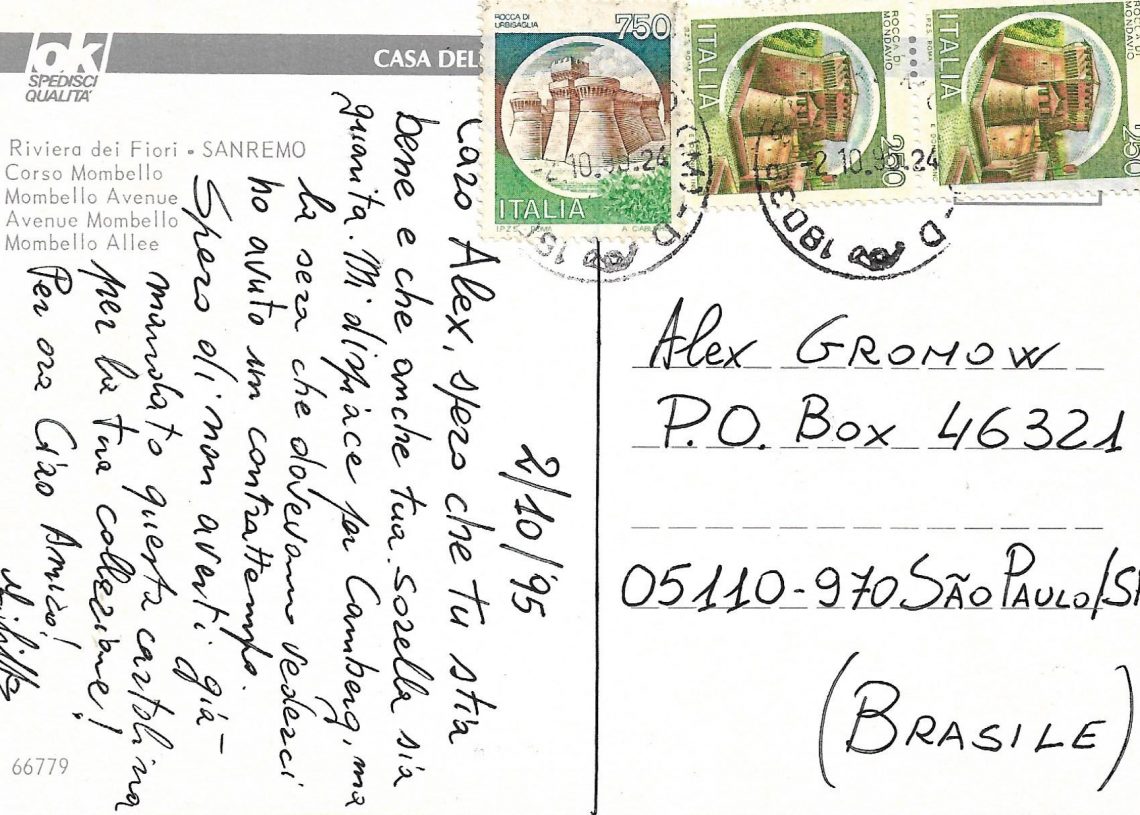 ok
SPEDISCI
QUALITA'
CASA DEL
Riviera dei Fiori - SANREMO
Corso Mombello
Mombello Avenue
Avenue Mombello
Mombello Allee
66779
ROCCA DI
URBISAGLIA
750
ITALIA
I.P.Z.S. ROMA
ITALIA
ROCCA DI
MONDAVIO
250
ITALIA
ROCCA DI
MONDAVIO
250
I.P.Z.S. ROMA
-2.10.95.24
2/10/'95
Caro Alex, spero che tu stia
bene e che anche tua sorella sia
guarita. Mi dispiace per Camberg, ma
la sera che dovevamo vederci
ho avuto un contrattempo.
Spero di non averti già
mandato questa cartolina
per la tua collezione!
Per ora Ciao Amico!
Alex GROMOW
P.O. Box 46321
05110-970 SÃO PAULO/SP
(BRASILE)